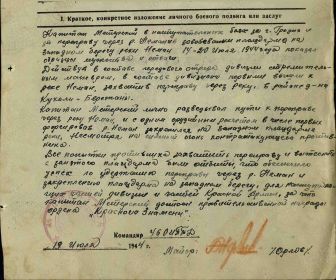 1. Краткое, конкретное изложение личного боевого подвига или заслуг
Капитан в наступательных боях за г. Гродно и
за переправу через р. Неман и завоевание плацдарма на
западном берегу реки Неман 14-20 июля 1944 года показал
образцы мужества и отваги.
Действуя в составе передового отряда дивизии стремитель-
ным маневром, в составе дивизиона первыми вышли к
реке Неман, захватив переправу через реку, в районе
Капитан лично разведовал пути к переправе
через реку Неман, и с одним орудийным расчетом в числе первых
форсировал р. Неман закрепился на западном плацдарме
реки. Несмотря на огонь контратакующего против-
ника.
Все попытки противника захватить переправу и вытеснить
с занятого плацдарма были отбиты, что обеспечило
успех по удержанию переправы через р. Неман и
закреплению плацдарма на западном берегу, для
дивизии и частей Красной Армии, за что
капитан достоин правительственной награды
ордена "Красного Знамени".
Командир
19 Июля 1944 г.
Майор: